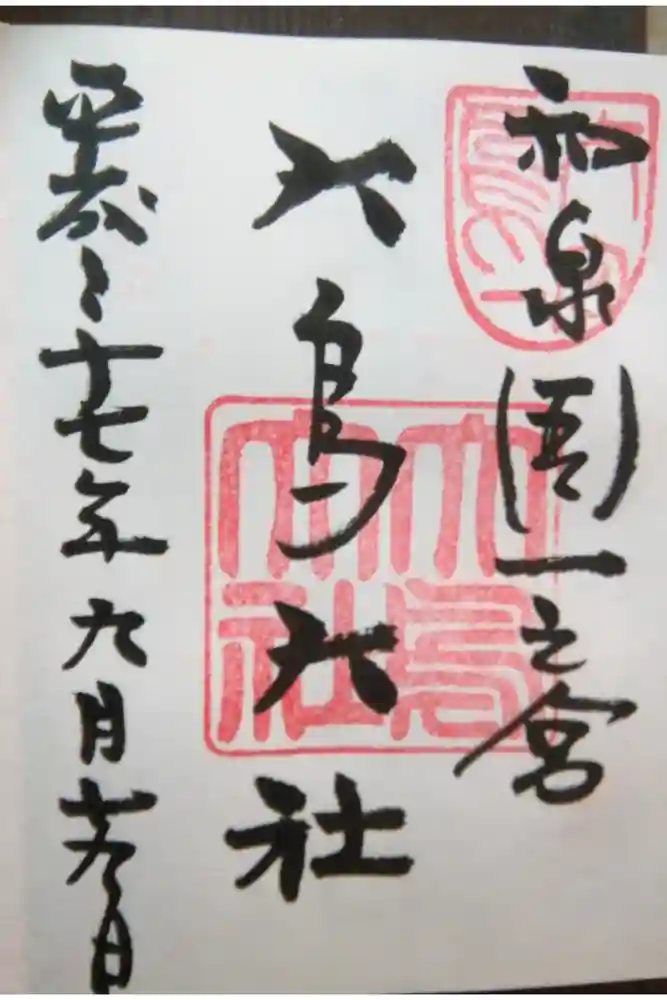 和泉國一之宮
大鳥大社
平成二十七年九月 日
大鳥大社